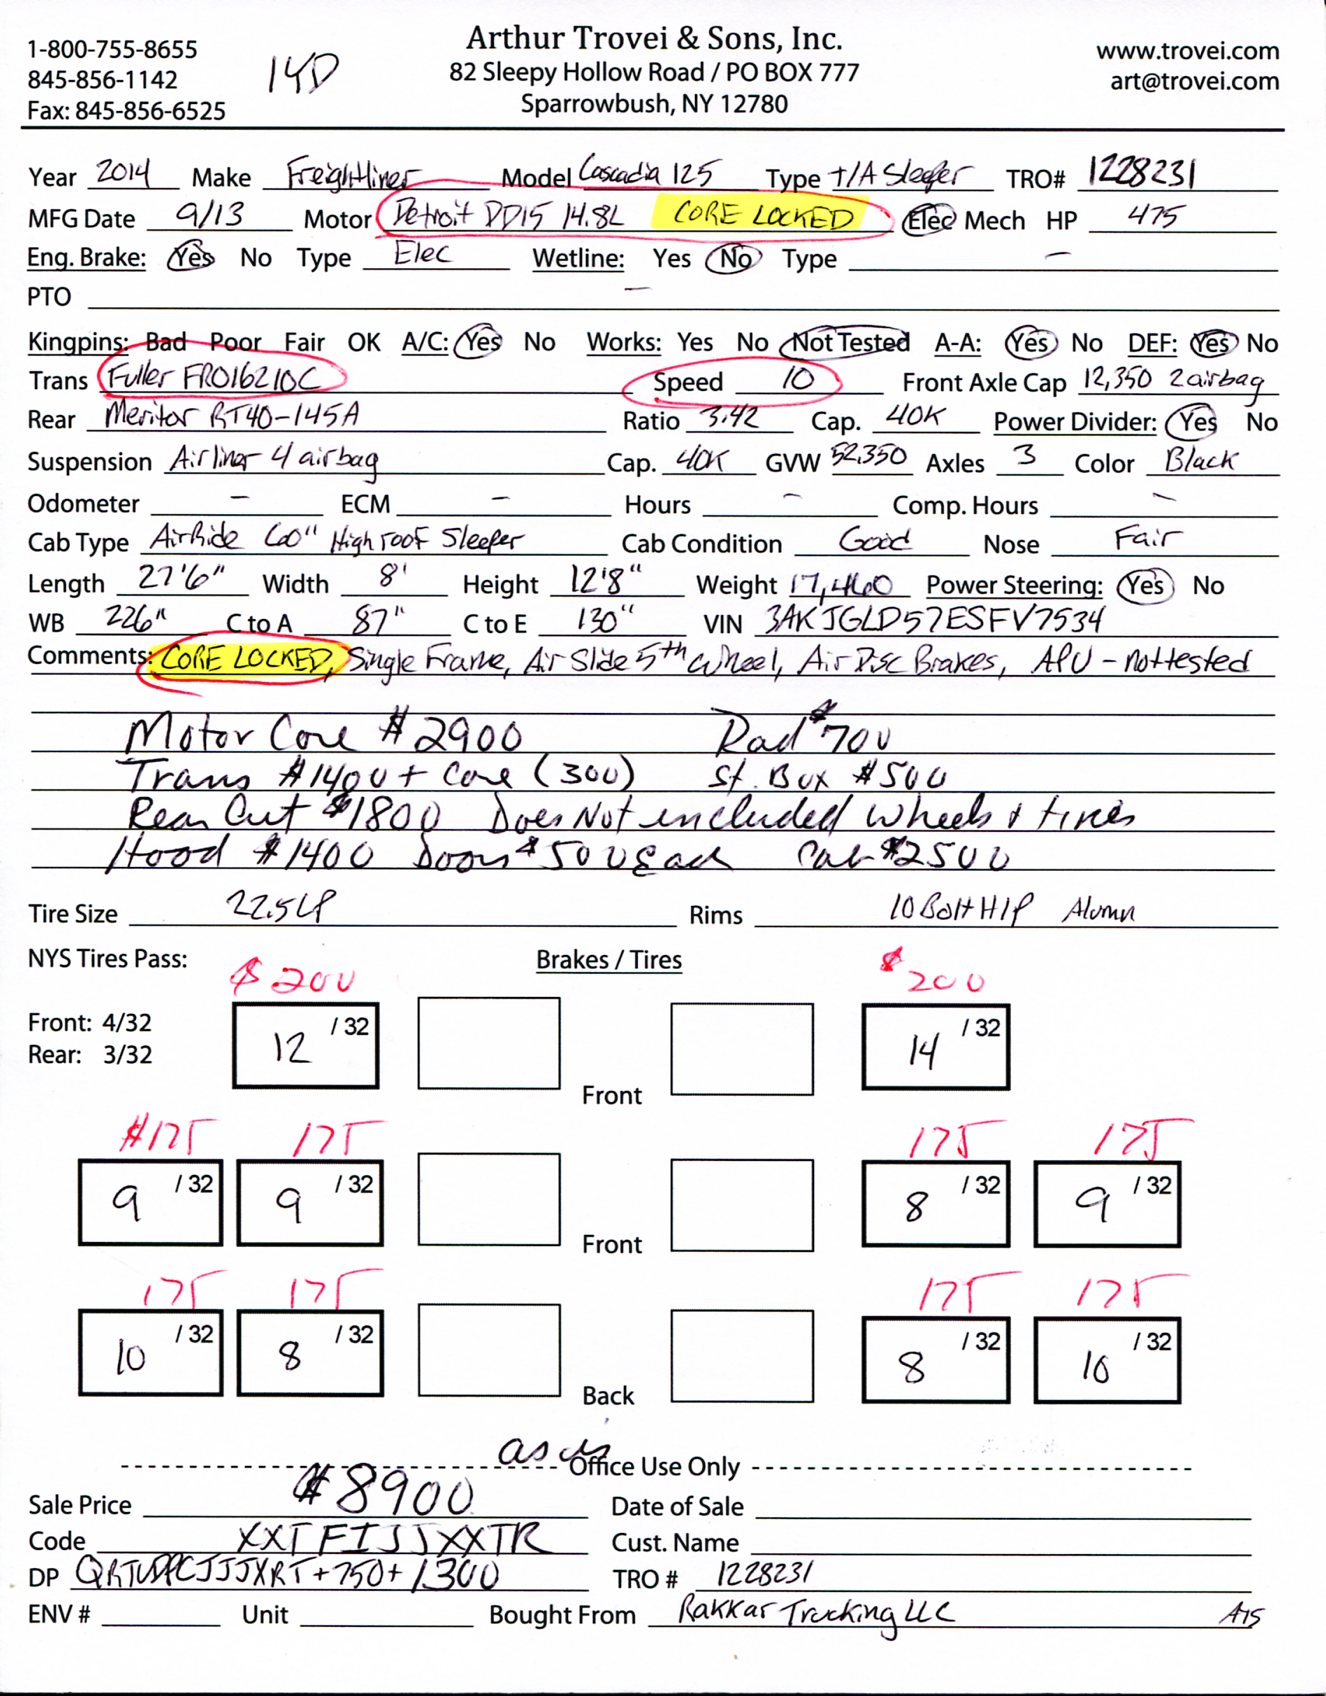 1-800-755-8655
845-856-1142
Fax: 845-856-6525
14D
Arthur Trovei & Sons, Inc.
82 Sleepy Hollow Road / PO BOX 777
Sparrowbush, NY 12780
www.trovei.com
art@trovei.com
Year 2014 Make Freightliner Model Cascadia 125 Type t/A Sleeper TRO# 1228231
MFG Date 9/13 Motor Detroit DD15 14.8L CORE LOCKED Elec Mech HP 475
Eng. Brake: Yes No Type Elec Wetline: Yes No Type —
PTO —
Kingpins: Bad Poor Fair OK A/C: Yes No Works: Yes No Not Tested A-A: Yes No DEF: Yes No
Trans Fuller FRO16210C Speed 10 Front Axle Cap 12,350 2 airbag
Rear Meritor RT40-145A Ratio 3.42 Cap. 40K Power Divider: Yes No
Suspension Airliner 4 airbag Cap. 40K GVW 52,350 Axles 3 Color Black
Odometer — ECM — Hours — Comp. Hours —
Cab Type AirRide 60" High roof Sleeper Cab Condition Good Nose Fair
Length 27'6" Width 8' Height 12'8" Weight 17,460 Power Steering: Yes No
WB 226" C to A 87" C to E 130" VIN 3AKJGLD57ESFV7534
Comments: CORE LOCKED, Single Frame, Air Slide 5th Wheel, Air Disc Brakes, APU - not tested
Motor Core $2900 Rad $700
Trans $1400 + Core (300) St. Box $500
Rear Cut $1800 Does Not included wheels & tires
Hood $1400 Doors $500 Each Cab $2500
Tire Size 22.5LP Rims 10 Bolt H/P Alumn
NYS Tires Pass: Brakes / Tires
$200 $200
Front: 4/32
Rear: 3/32
12 /32 14 /32
Front
$175 175 175 175
9 /32 9 /32 8 /32 9 /32
Front
175 175 175 175
10 /32 8 /32 8 /32 10 /32
Back
as is
Office Use Only
Sale Price $8900 Date of Sale
Code XXTFIJJXXTR Cust. Name
DP +750+1300 TRO # 1228231
ENV # Unit Bought From Rakkar Trucking LLC A15